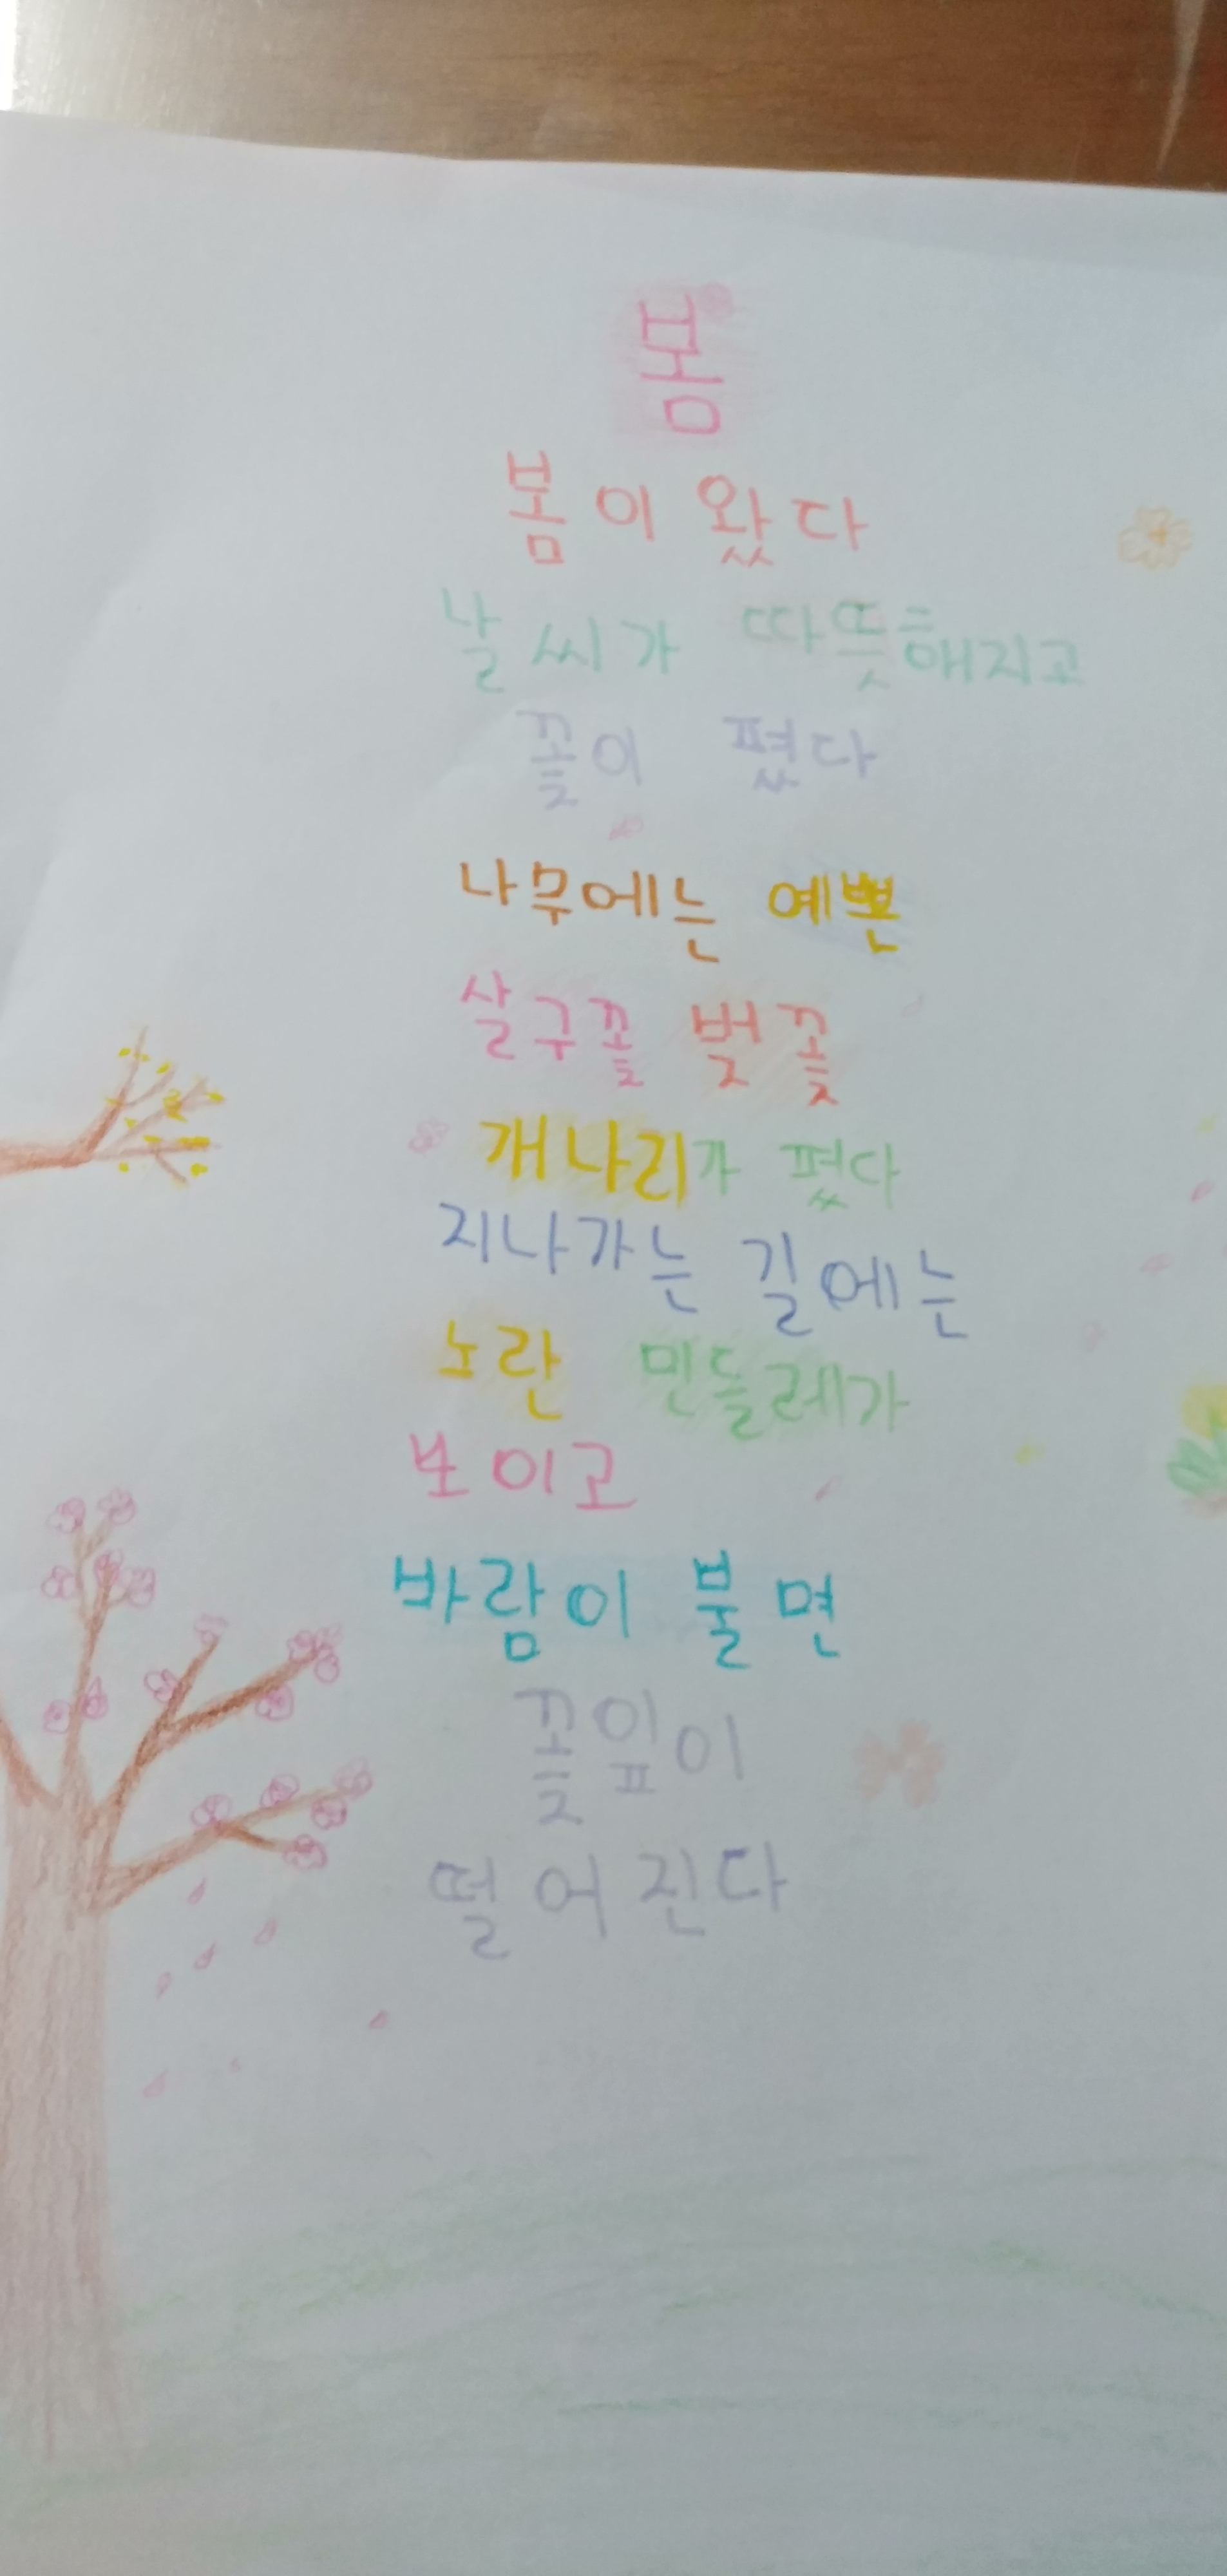 봄
봄이 왔다
날씨가 따뜻해지고
꽃이 폈다
나무에는 예쁜
살구꽃 벚꽃
개나리가 폈다
지나가는 길에는
노란 민들레가
보이고
바람이 불면
꽃잎이
떨어진다